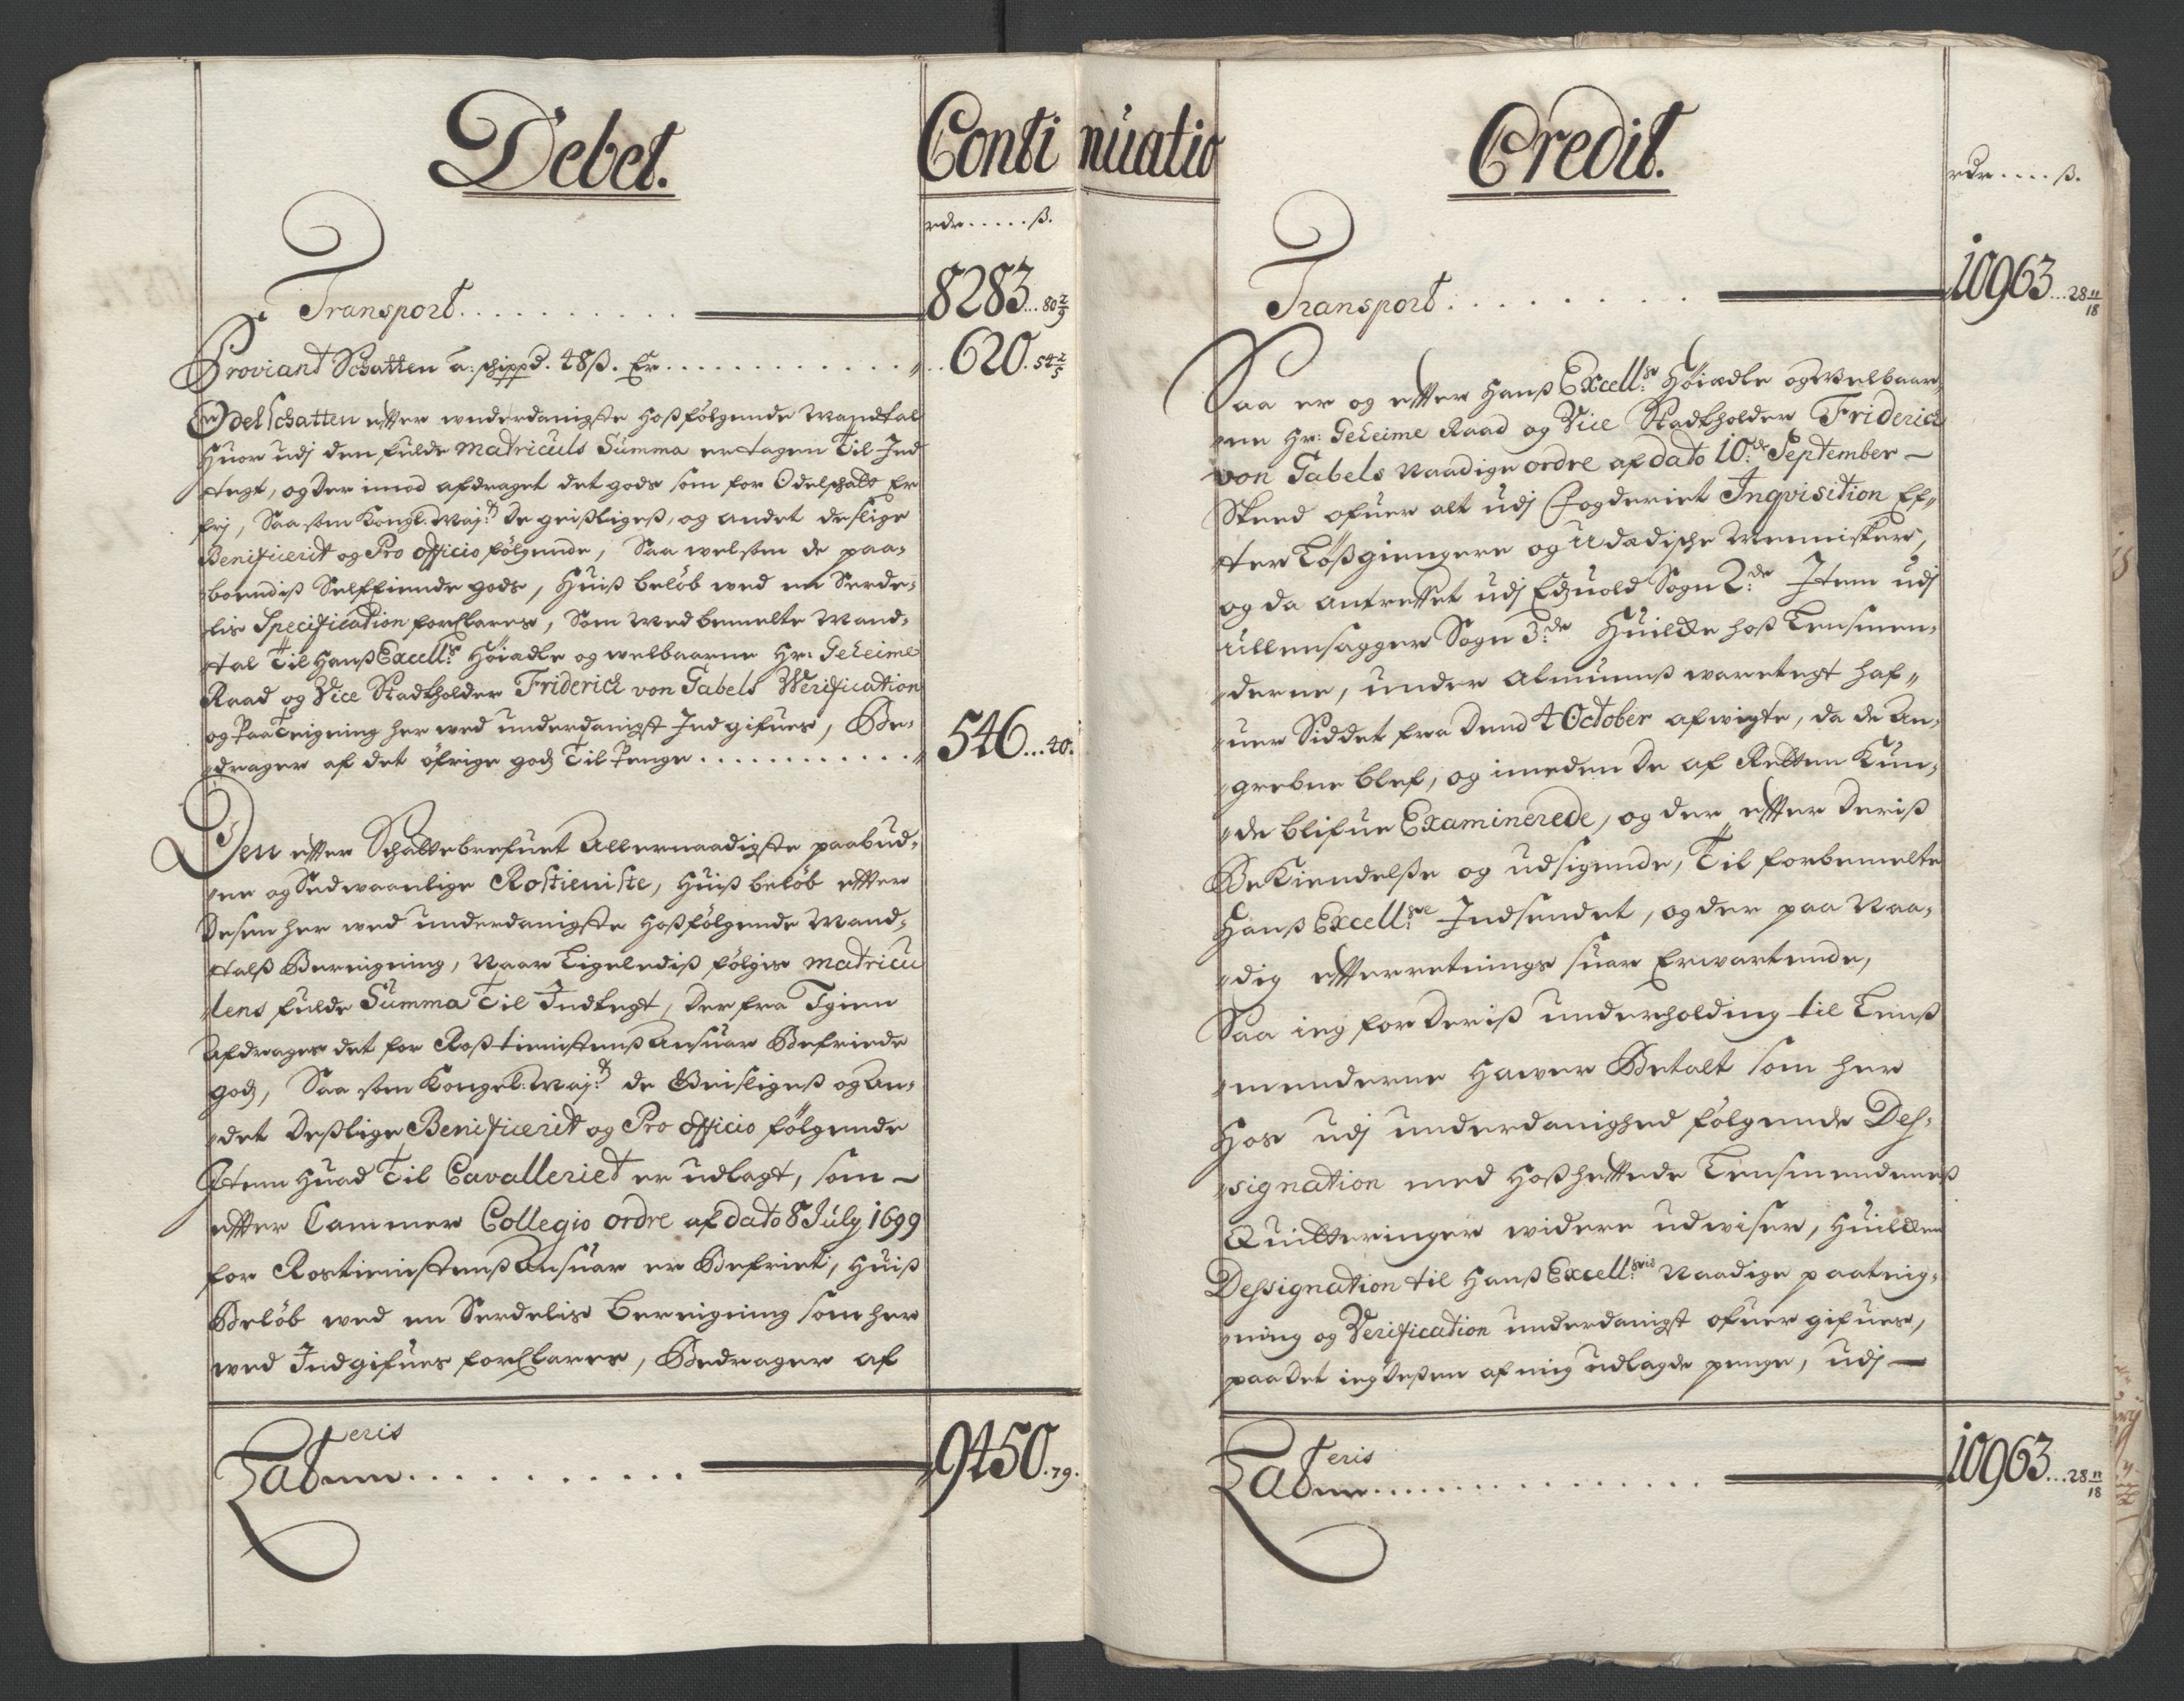 Debet.
Conti nuatio
rdr.....ß.
Transport........... 8283...80 2/9
Proviant Schatten â: schippd. 48ß. Er............ 620.54 2/5
Odelschatten effter underdanigste hoßfölgende Mandtal
Huor udj den fulde Matriculs Summa er tagen Til Ind
tegt, og der imod afdraget det gods som for Odelschatt Er
frj, Saa som Kongl: Maj:ts de geistliges, og andet deslige
Benificerit og Pro officio fölgende, Saa wel som de paa-
boendis Selfeiende gods, Huis belöb wed en Serde-
lis Specification forklares, Som wed bemelte Mand-
tal Til Hanß Excell:s Höiædle og welbaarne Hr: Geheime
Raad og Vice Stadtholder Friderich von Gabels Verification
og Paateigning her wed underdanigst Indgifues, Be-
drager af det öfrige gods Til Penge............ 546...40.
Den effter Schattebrefuet Allernaadigste paabud-
ne og Sedwaanlige Rostieniste, Huis belöb effter
desen her wed underdanigste hoßfölgende Mand-
talß Beregning, Naar Ligeledis fölges Matricu
lens fulde Summa Til Indtegt, der fra Igien
Afdrages det for Roßtienistens Ansuar Befriede
gods, Saa som Kongel: Maj:ts de Geistliges og An-
det deßlige Benificerit og Pro officio fölgende
Item Huad Til Cavalleriet er udlagt, som
effter Cammer Collegio ordre af dato 8 July 1699
for Rostienistens Ansuar er Befriet, Huis
Belöb wed en Serdelis Beregning som her
wed Indgifues forklares, Bedrager af
Lateris........... 9450.79.
Credit.
rdr....ß.
Transport......... 10963...28 11/18
Saa er og effter Hanß Excell:ce Höiædle og Velbaar-
ne Hr: Geheime Raad og Vice Stadtholder Friderich
von Gabels Naadige ordre af dato 10:de September
Skeed ofuer alt udj Fogderiet Inqvisition Ef-
ter Lößgiengere og Udædische Mennisker,
og da antreffet udj Edzuold Sogn 2:de Item udj
Ullensagger Sogn 3:de Huilcke hoß Lensmen-
derne, under Almuens waretegt haf-
uer Siddet fra dend 4 October afwigte, da de An-
grebne blef, og imeden de af Retten Kun-
de blifue Examinerede, og der effter deris
Bekiendelße og udsigende, Til forbemelte
Hanß Excell:ce Indsendet, og der paa Naa-
dig effterretnings suar Erwartende,
Saa ieg for deris underholding til Lens
menderne Hawer Betalt som her
Hos udj underdanighed fölgende Des-
signation med hoßhefftede Lensmendenes
Quitteringer widere udwiser, Huilcken
Dessignation til Hanß Excell: Naadige paateig-
ning og Verification underdanigst ofuergifues,
paa det ieg deßen af mig udlagde penge, udj
Lateris................ 10963...28 11/18